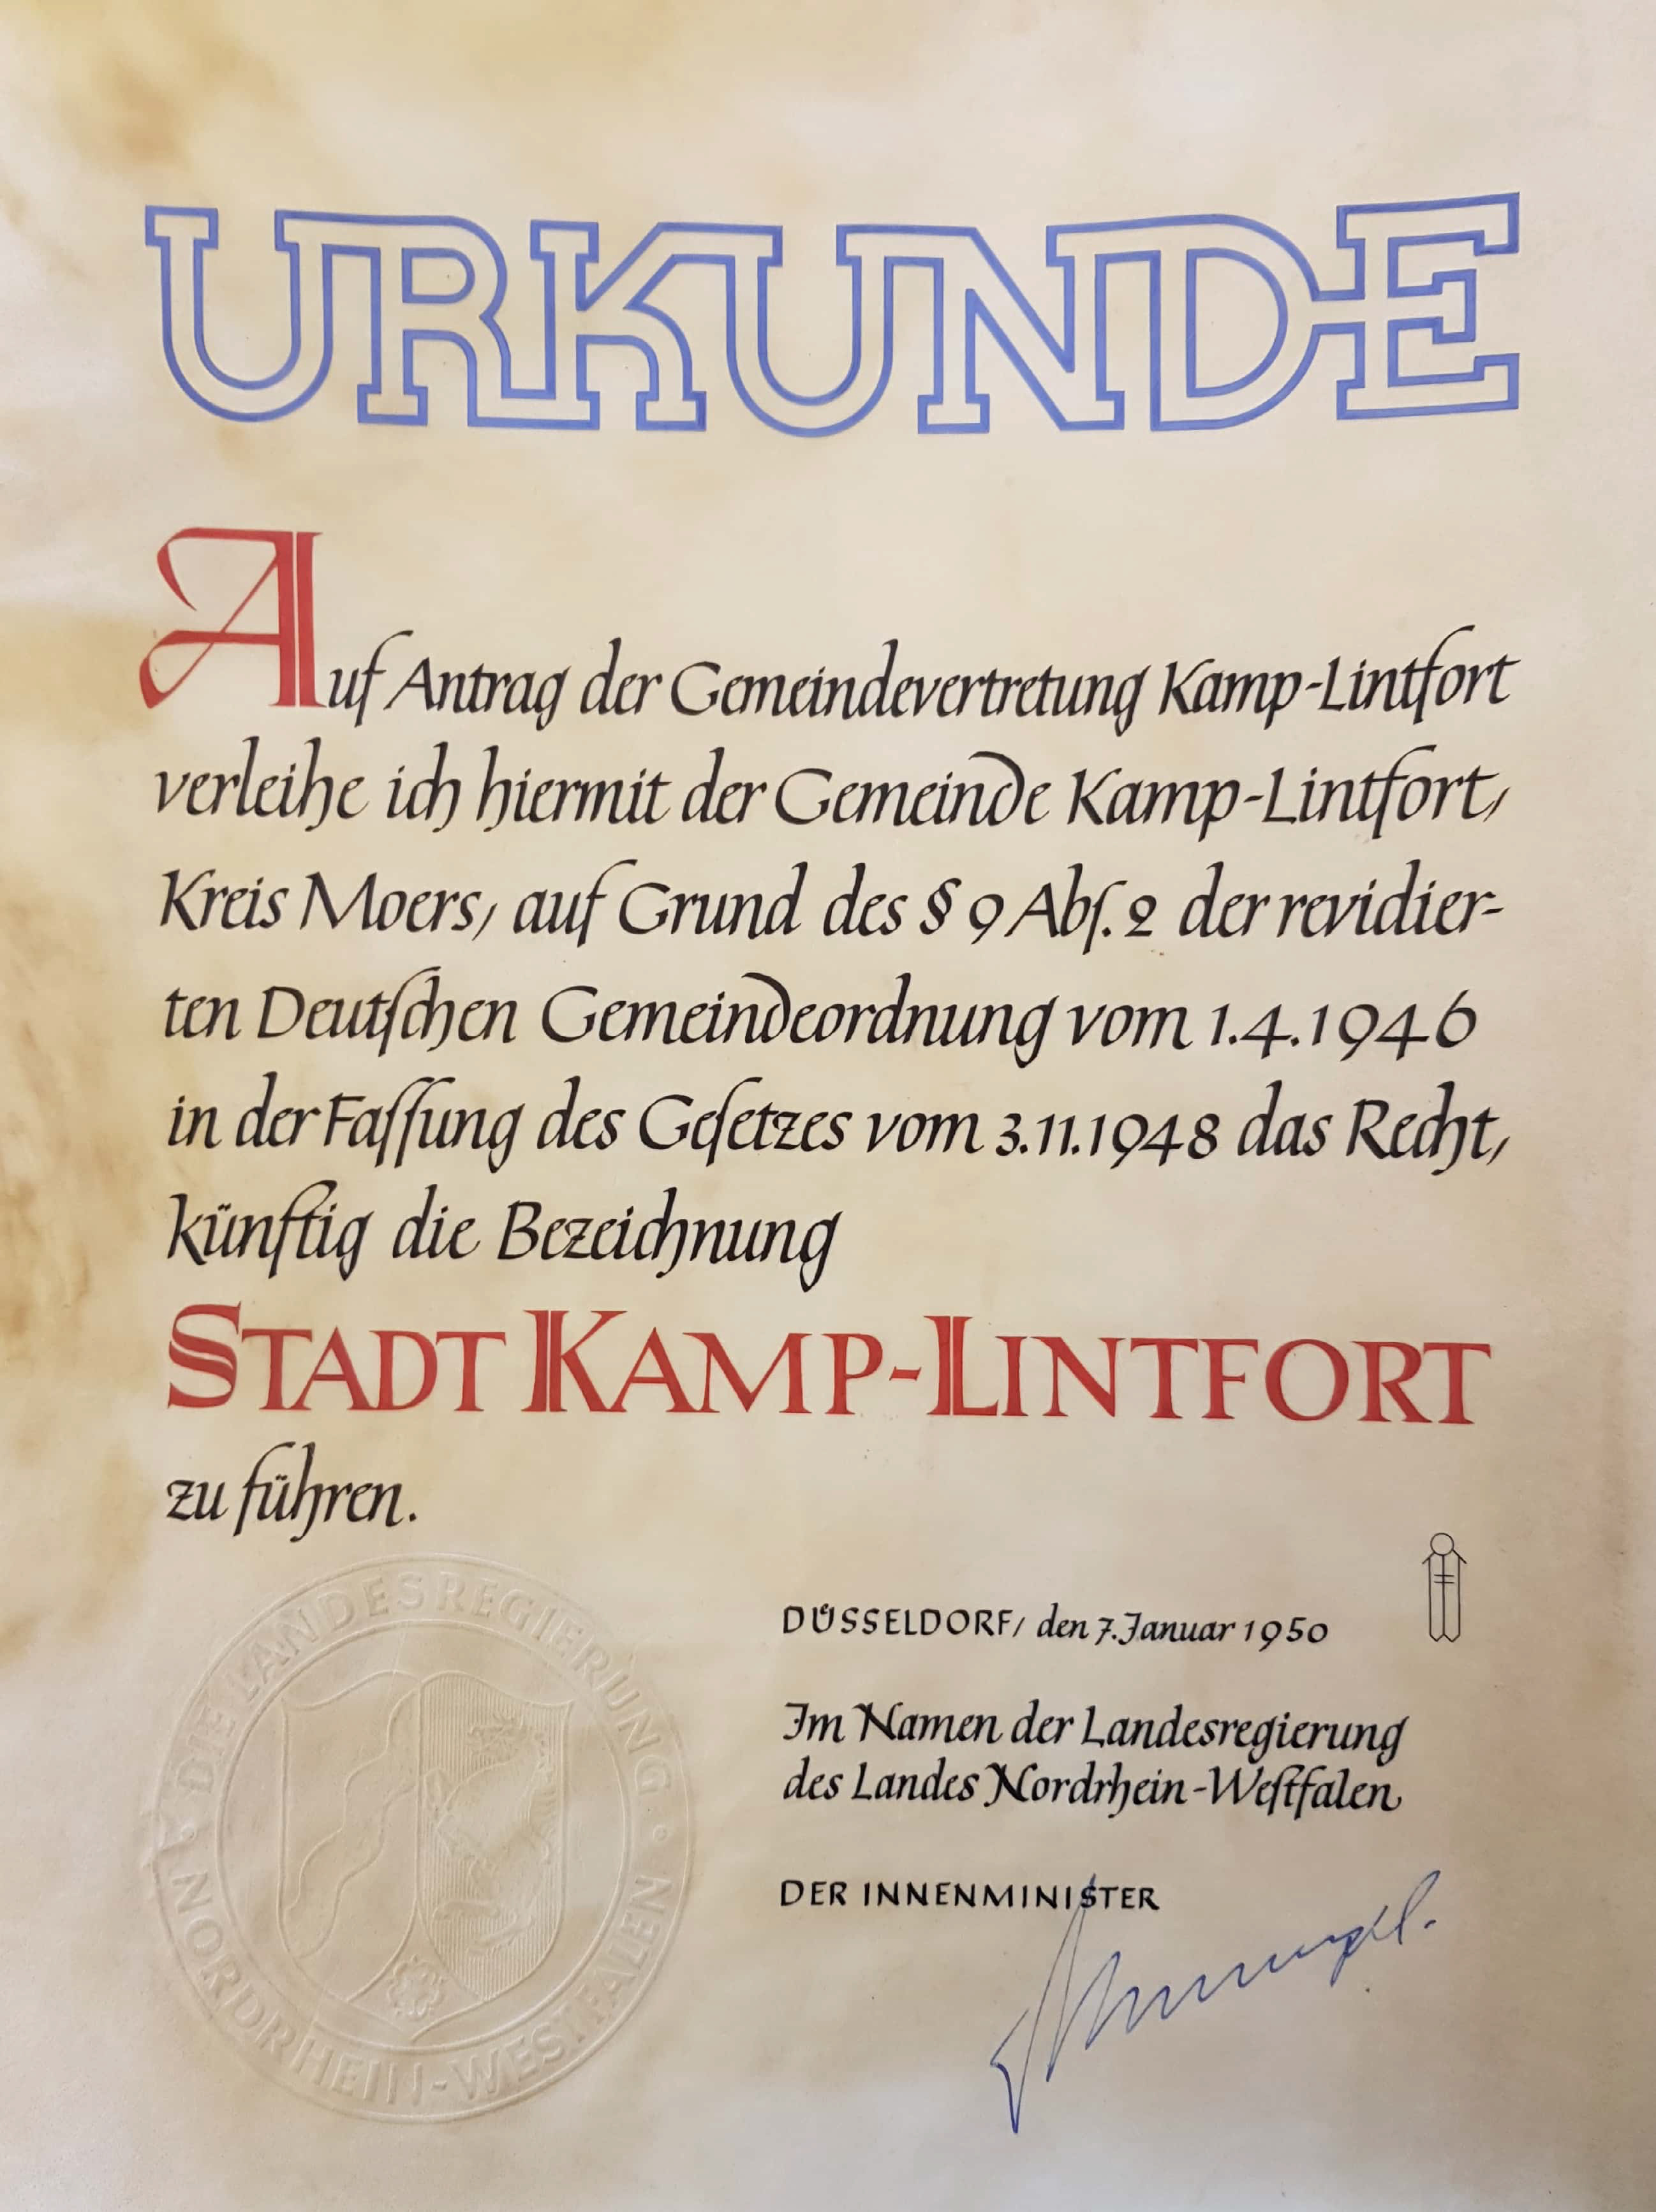 URKUNDE
Auf Antrag der Gemeindevertretung Kamp-Lintfort
verleihe ich hiermit der Gemeinde Kamp-Lintfort,
Kreis Moers, auf Grund des § 9 Abſ. 2 der revidier-
ten Deutſchen Gemeindeordnung vom 1.4.1946
in der Faſſung des Geſetzes vom 3.11.1948 das Recht,
künftig die Bezeichnung
STADT KAMP-LINTFORT
zu führen.
DÜSSELDORF, den 7. Januar 1950
Im Namen der Landesregierung
des Landes Nordrhein-Weſtfalen
DER INNENMINISTER
DIE LANDESREGIERUNG
NORDRHEIN-WESTFALEN